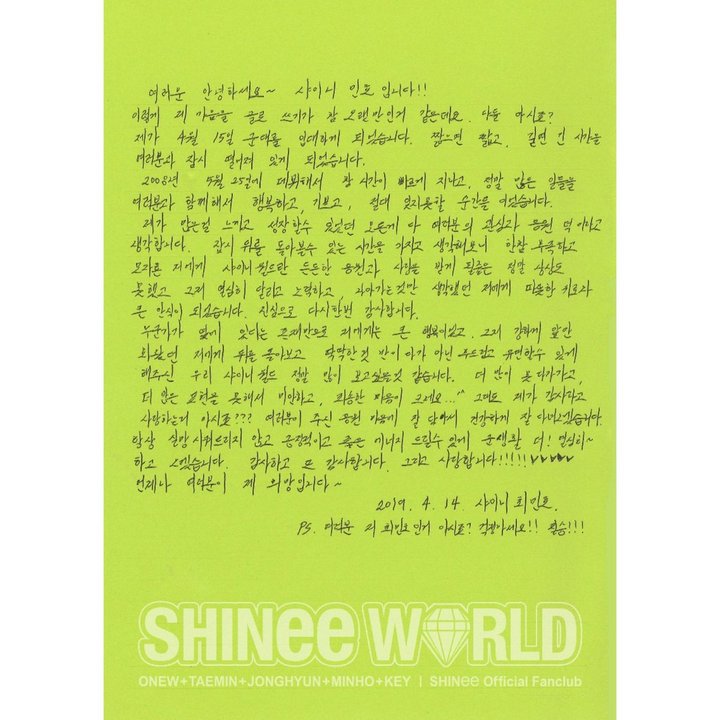 여러분 안녕하세요~ 샤이니 민호입니다!!
이렇게 제 마음을 글로 쓰기가 참 오랜만인거 같은데요. 다들 아시죠?
제가 4월 15일 군대를 입대하게 되었습니다. 짧으면 짧고, 길면 긴 시간을
여러분과 잠시 떨어져 있게 되었습니다.
2008년 5월 25일에 데뷔해서 참 시간이 빠르게 지나고, 정말 많은 일들을
여러분과 함께해서 행복하고, 기쁘고, 절대 잊지못할 순간들 이었습니다.
제가 많은걸 느끼고 성장할수 있었던 모든게 다 여러분의 관심과 응원 덕이라고
생각합니다. 잠시 뒤를 돌아볼수 있는 시간을 가지고 생각해보니 한참 부족하고
모자른 저에게 샤이니 월드란 든든한 응원과 사랑을 받게 될줄은 정말 상상도
못했고 그저 열심히 달리고 노력하고, 나아가는것만 생각했던 저에게 따뜻한 치료와
큰 안식이 되었습니다. 진심으로 다시한번 감사합니다.
누군가가 옆에 있다는 존재만으로 저에게는 큰 행복이었고, 그저 강하게 앞만
봤던 저에게 뒤를 돌아보고 딱딱한것 만이 아닌 부드럽고 유연할수 있게
해주신 우리 샤이니 월드 정말 많이 보고싶을것 같습니다. 더 많이 못다가가고,
더 많은 표현을 못해서 미안하고, 죄송한 마음이 크네요...^^ 그래도 제가 감사하고
사랑하는거 아시죠??? 여러분이 주신 응원 마음에 잘 담아서 건강하게 잘 다녀오겠습니다.
항상 실망시켜드리지 않고 긍정적이고 좋은 에너지 드릴수있게 군생활 더! 열심히~
하고 오겠습니다. 감사하고 또 감사합니다. 그리고 사랑합니다!!!!!♥♥♥♥♥
언제나 여러분이 제 희망입니다~
2019. 4. 14. 샤이니 최민호.
PS. 여러분 저 최민호인거 아시죠? 걱정마세요!! 필승!!!
SHINee WORLD
ONEW+TAEMIN+JONGHYUN+MINHO+KEY | SHINee Official Fanclub